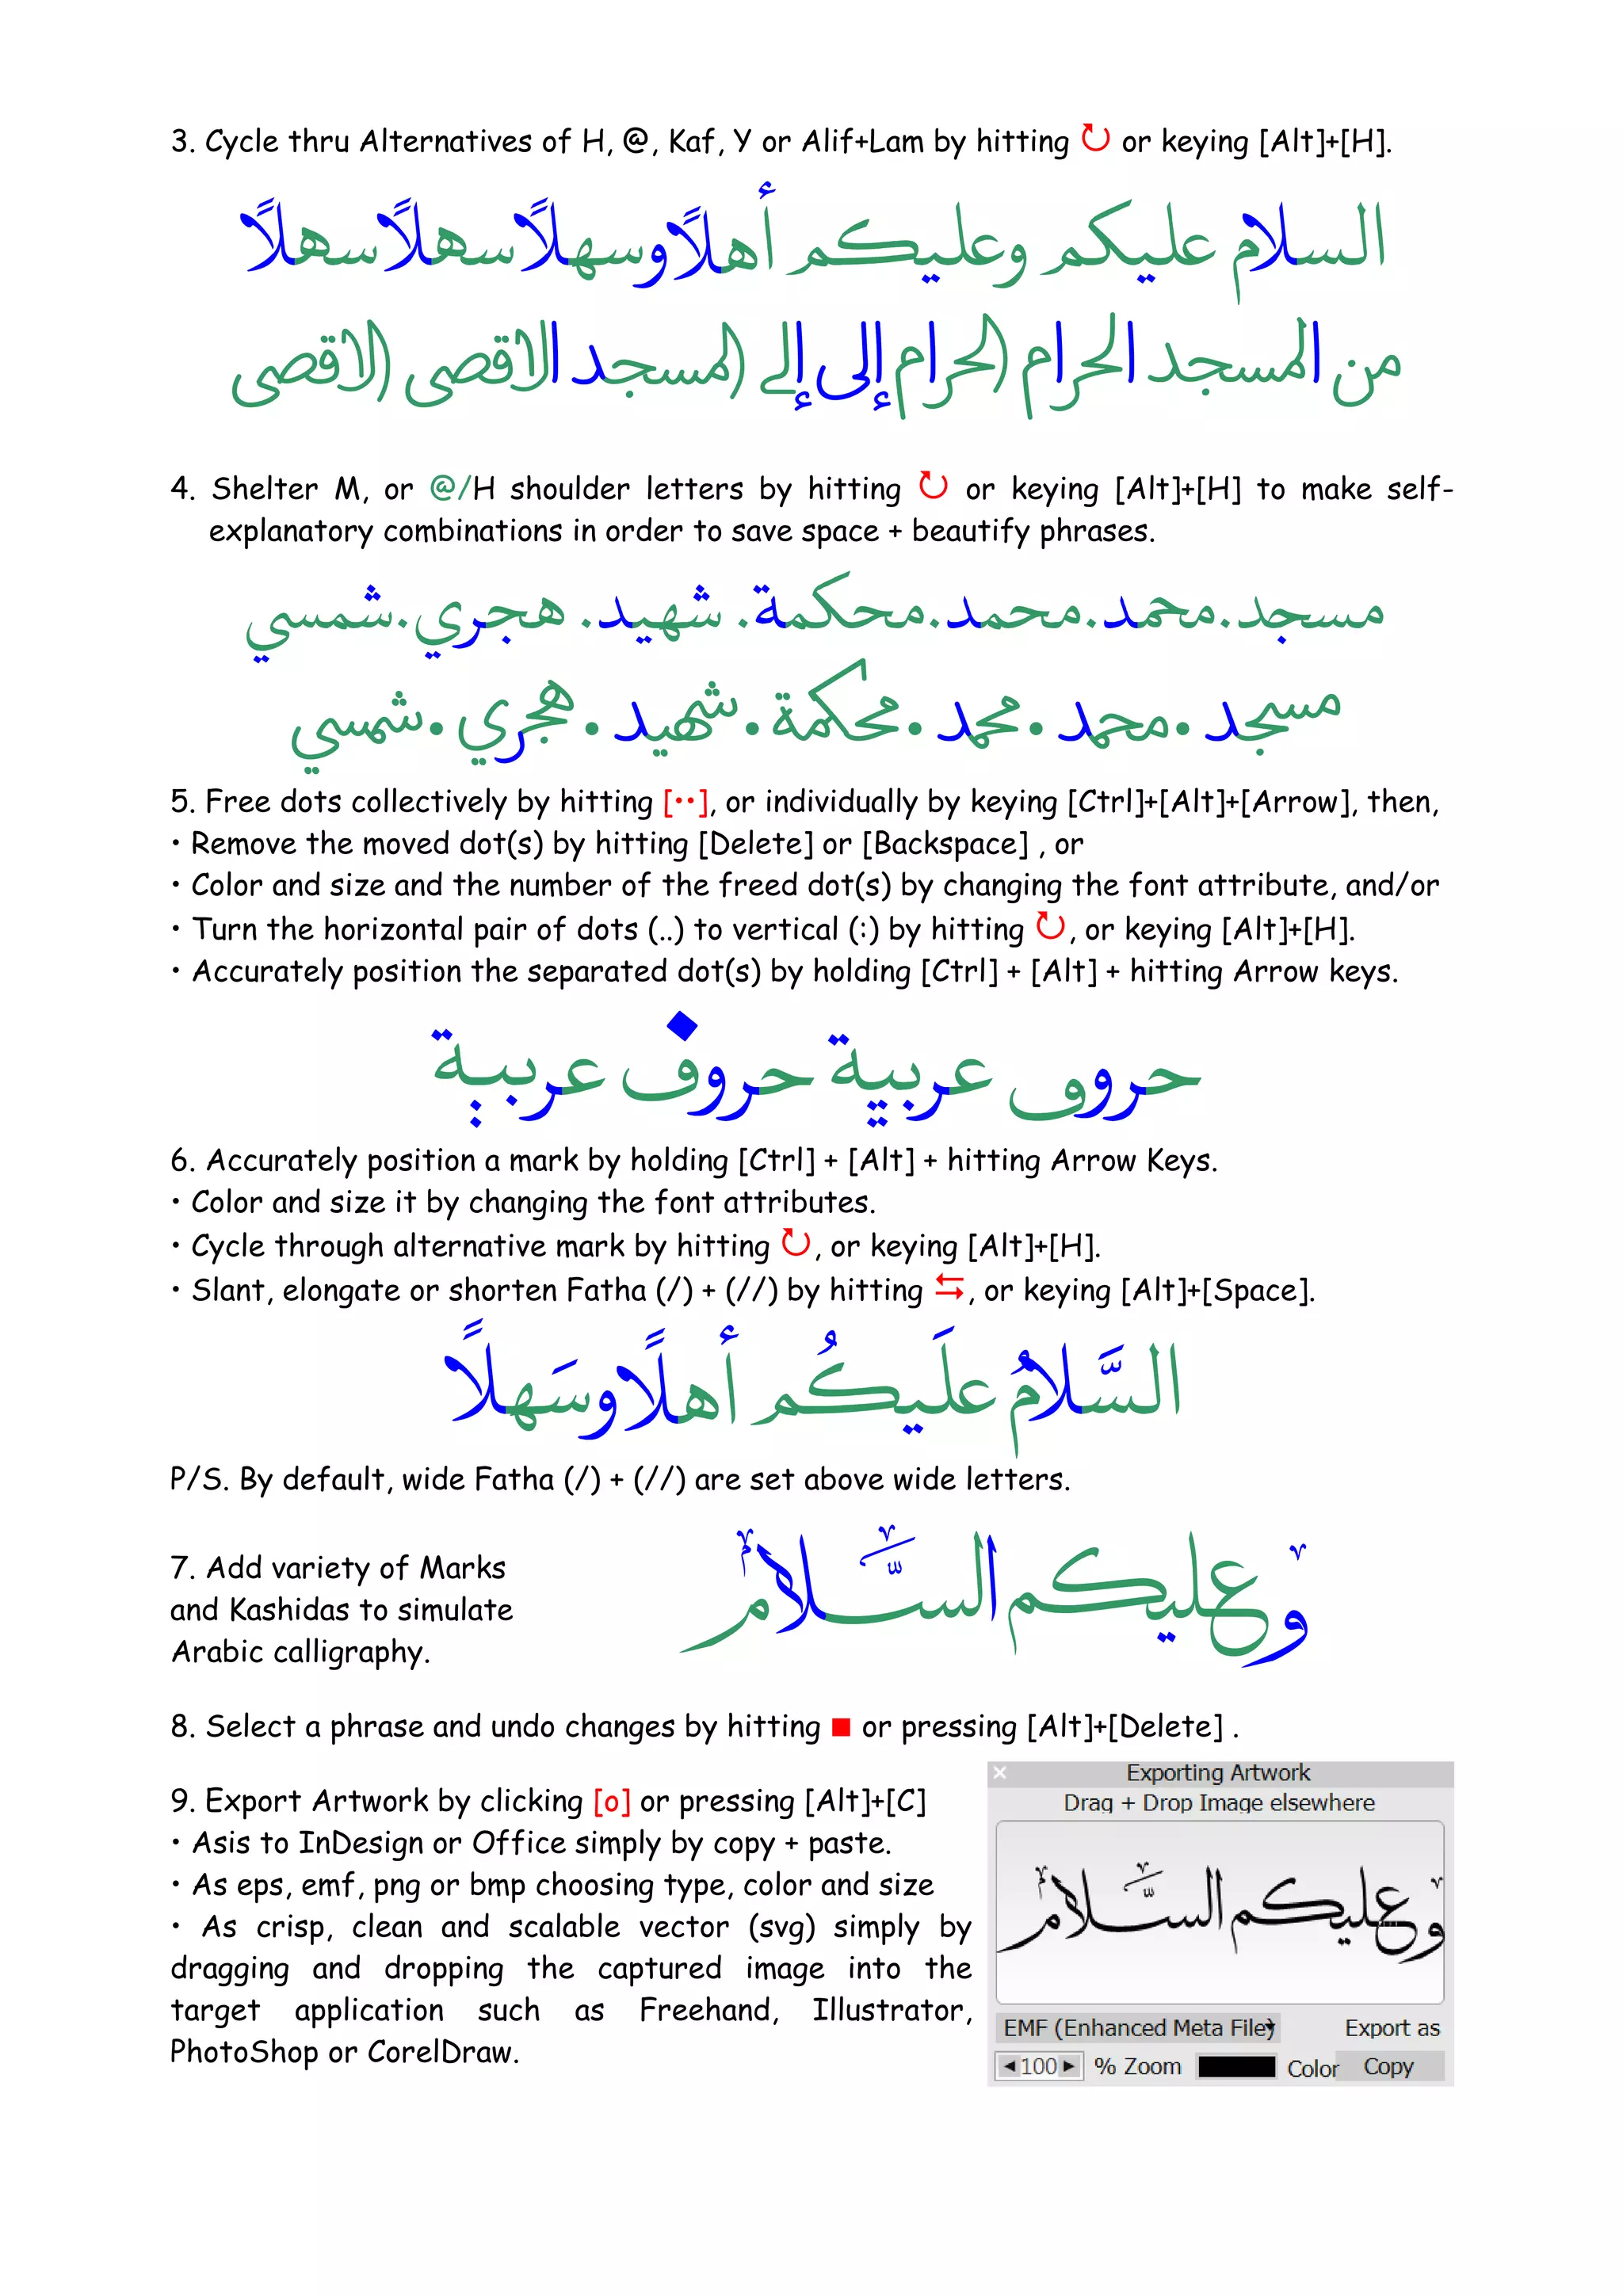 3. Cycle thru Alternatives of H, @, Kaf, Y or Alif+Lam by hitting ↻ or keying [Alt]+[H].
السلام عليكم وعليكم أهلاً وسهلاً سهلاً سهلاً
من المسجد الحرام الحرام إلى إلى المسجد الاقصى الاقصى
4. Shelter M, or @/H shoulder letters by hitting ↻ or keying [Alt]+[H] to make self-
explanatory combinations in order to save space + beautify phrases.
مسجد.محمد.محمد.محكمة. شهيد. هجري.شمسي
مسجد.محمد.محمد.محكمة.شهيد.هجري.شمسي
5. Free dots collectively by hitting [··], or individually by keying [Ctrl]+[Alt]+[Arrow], then,
• Remove the moved dot(s) by hitting [Delete] or [Backspace] , or
• Color and size and the number of the freed dot(s) by changing the font attribute, and/or
• Turn the horizontal pair of dots (..) to vertical (:) by hitting ↻, or keying [Alt]+[H].
• Accurately position the separated dot(s) by holding [Ctrl] + [Alt] + hitting Arrow keys.
حروڡ عربية حروف عربية
6. Accurately position a mark by holding [Ctrl] + [Alt] + hitting Arrow Keys.
• Color and size it by changing the font attributes.
• Cycle through alternative mark by hitting ↻, or keying [Alt]+[H].
• Slant, elongate or shorten Fatha (/) + (//) by hitting ⇆, or keying [Alt]+[Space].
السَّلامُ علَيكُم أهلاً وسَهلاً
P/S. By default, wide Fatha (/) + (//) are set above wide letters.
7. Add variety of Marks
and Kashidas to simulate
Arabic calligraphy.
وعليكم السَّلام
8. Select a phrase and undo changes by hitting ■ or pressing [Alt]+[Delete] .
9. Export Artwork by clicking [o] or pressing [Alt]+[C]
• Asis to InDesign or Office simply by copy + paste.
• As eps, emf, png or bmp choosing type, color and size
• As crisp, clean and scalable vector (svg) simply by
dragging and dropping the captured image into the
target application such as Freehand, Illustrator,
PhotoShop or CorelDraw.
Exporting Artwork
Drag + Drop Image elsewhere
وعليكم السَّلام
EMF (Enhanced Meta File) Export as
100 % Zoom Color Copy